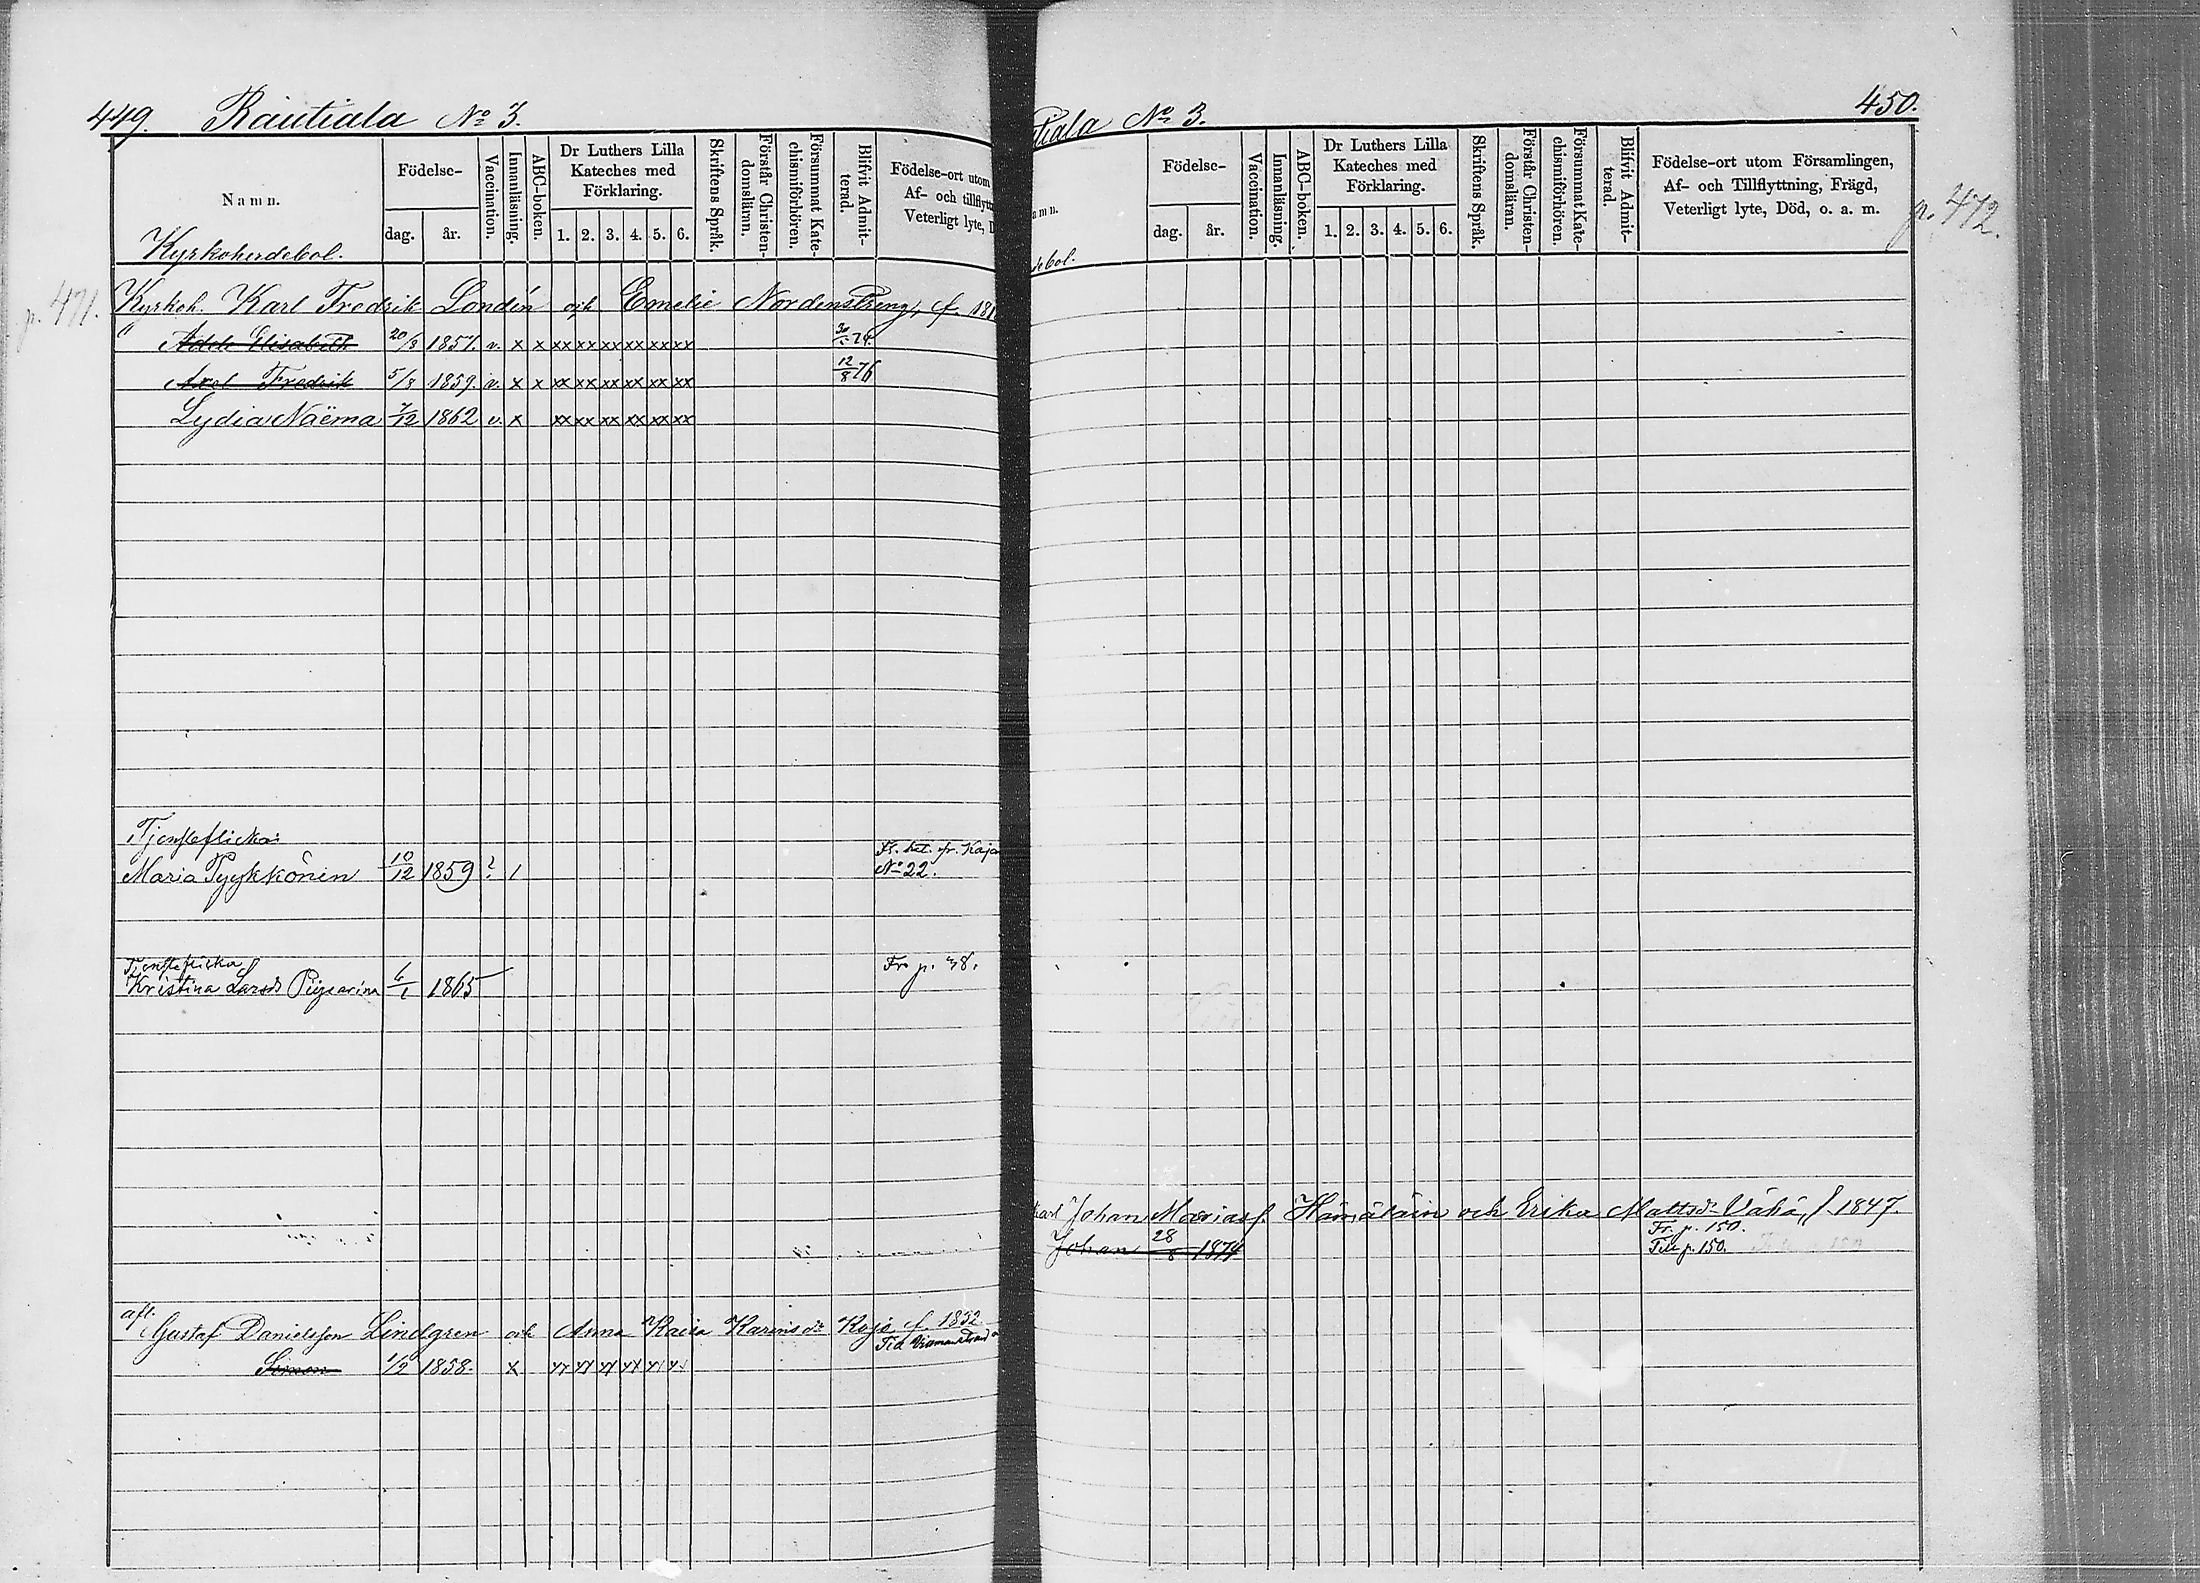 449. Rautiala No 3.
Namn.
Födelse-
dag. år.
Vaccination.
Innanläsning.
ABC-boken.
Dr Luthers Lilla Kateches med Förklaring.
1. 2. 3. 4. 5. 6.
Skriftens Språk.
Förstår Christen-domsläran.
Försummat Kate-chismiförhören.
Blifvit Admit-terad.
Födelse-ort utom
Af- och tillflytt
Veterligt lyte, D
Kyrkoherdebol.
p. 471.
Kyrkoh. Karl Fredrik Londén och Emelie Nordenstreng, f. 18
" Elisabeth 20/3 1857. v. x x xx xx xx xx xx xx 74
Axel Fredrik 5/8 1859. v. x x xx xx xx xx xx xx 12/8 76
Lydia Naëma 7/12 1862 v. x xx xx xx xx xx xx
Tjensteflickor
Maria Pyykkönin 10/12 1859 ? / Fr. bet. fr. Kaja
No 22.
Tjensteflicka Fr. p. 38.
Kristina Larsd 1/1 1865
aft.
Gustaf Danielsson Lindgren och Anna Kaisa Karinsdr Kojo f. 1832.
Simon 1/2 1858. x
450.
tiala No 3.
amn.
Födelse-
dag. år.
Vaccination.
Innanläsning.
ABC-boken.
Dr Luthers Lilla Kateches med Förklaring.
1. 2. 3. 4. 5. 6.
Skriftens Språk.
Förstår Christen-domsläran.
Försummat Kate-chismiförhören.
Blifvit Admit-terad.
Födelse-ort utom Församlingen,
Af- och Tillflyttning, Frägd,
Veterligt lyte, Död, o. a. m.
debol.
p. 472.
Johan Mariasf. Hämäläin och Erika Mattsdr Vähä, f. 1847.
Fr. p. 150.
Johan 28/8 1874 Till p. 150.